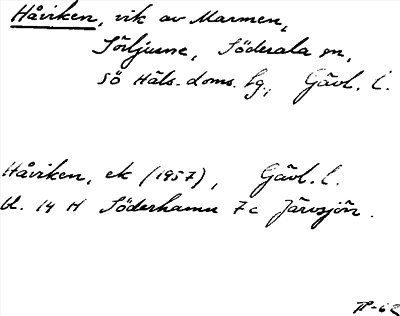 Håviken, vik av Marmen,
Sörljusne, Söderala sn,
SÖ Häls. doms. hg., Gävl. l.
Håviken, ek (1957), Gävl. l.
bl. 14 H Söderhamn 7c Järvsjön.
-62